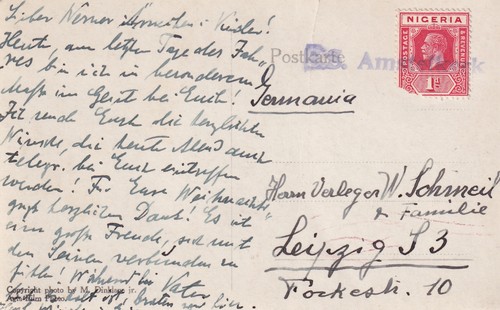 Lieber Werner, Annelies u. Kinder!
Heute, am letzten Tage des Jah-
res bin ich in besonderem
Maße im Geist bei Euch!
Ich sende Euch die herzlichsten
Wünsche, die heute Abend auch
telegr. bei Euch eintreffen
werden! Für Eure Weihnachts-
grüße herzlichen Dank! Es ist
eine große Freude, sich mit
den Seinen verbunden zu
fühlen! Während bei Vater
kalt ist, braten wir hier.
Copyright photo by M. Dinklage jr.
Postkarte
NIGERIA
POSTAGE
& REVENUE
1d
Germania
Herrn Verleger W. Schmeil
& Familie
Leipzig S 3
Fockestr. 10